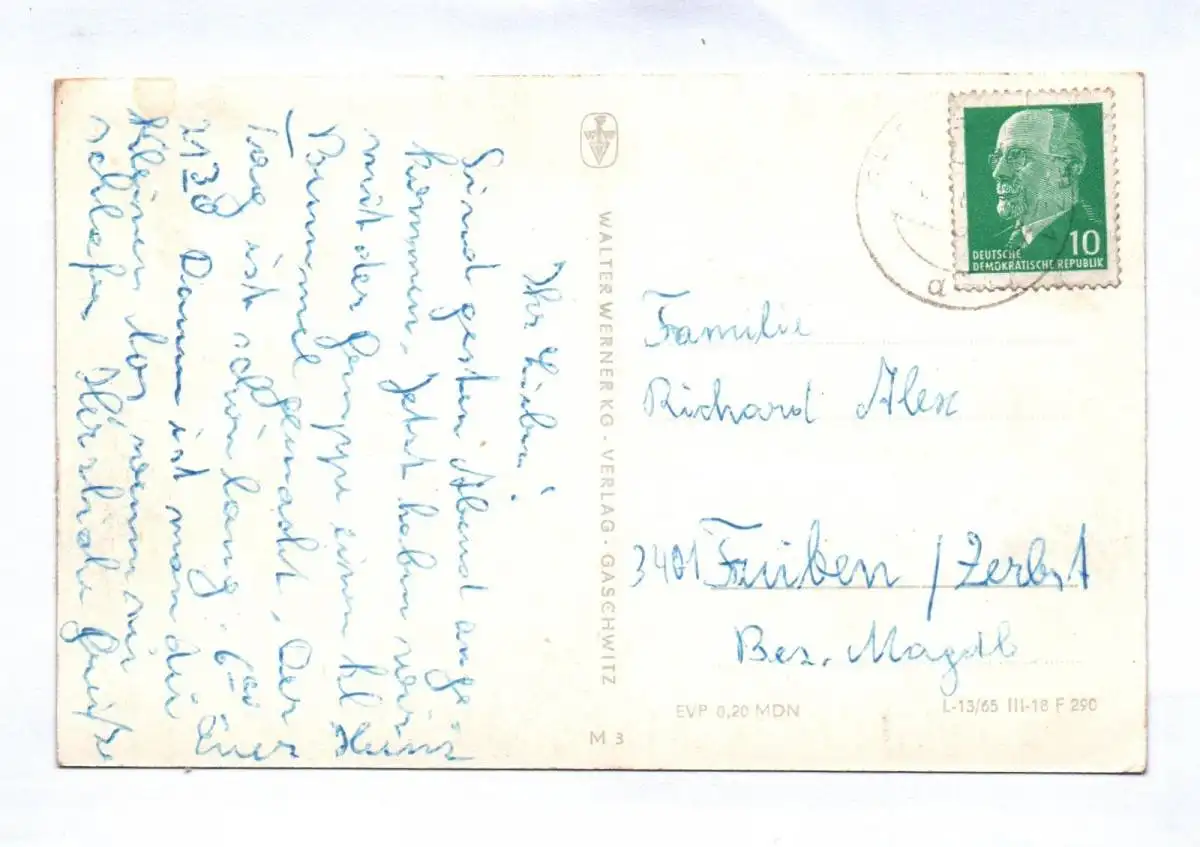 Ihr Lieben!
Sind gestern Abend ange-
kommen. Jetzt haben wir
mit der Gruppe einen kl
Bummel gemacht. Der
Tag ist schön lang. 6⁰⁰
2130 Dann ist man die
Kleinen los wenn sie
schlafen Herzliche Grüße
Euer Heinz
WALTER WERNER KG · VERLAG · GASCHWITZ
M 3
DEUTSCHE
DEMOKRATISCHE REPUBLIK
10
a
Familie
Richard Alex
3401 /Zerbst
Bez. Magdb
EVP 0,20 MDN
L-13/65 III-18 F 290